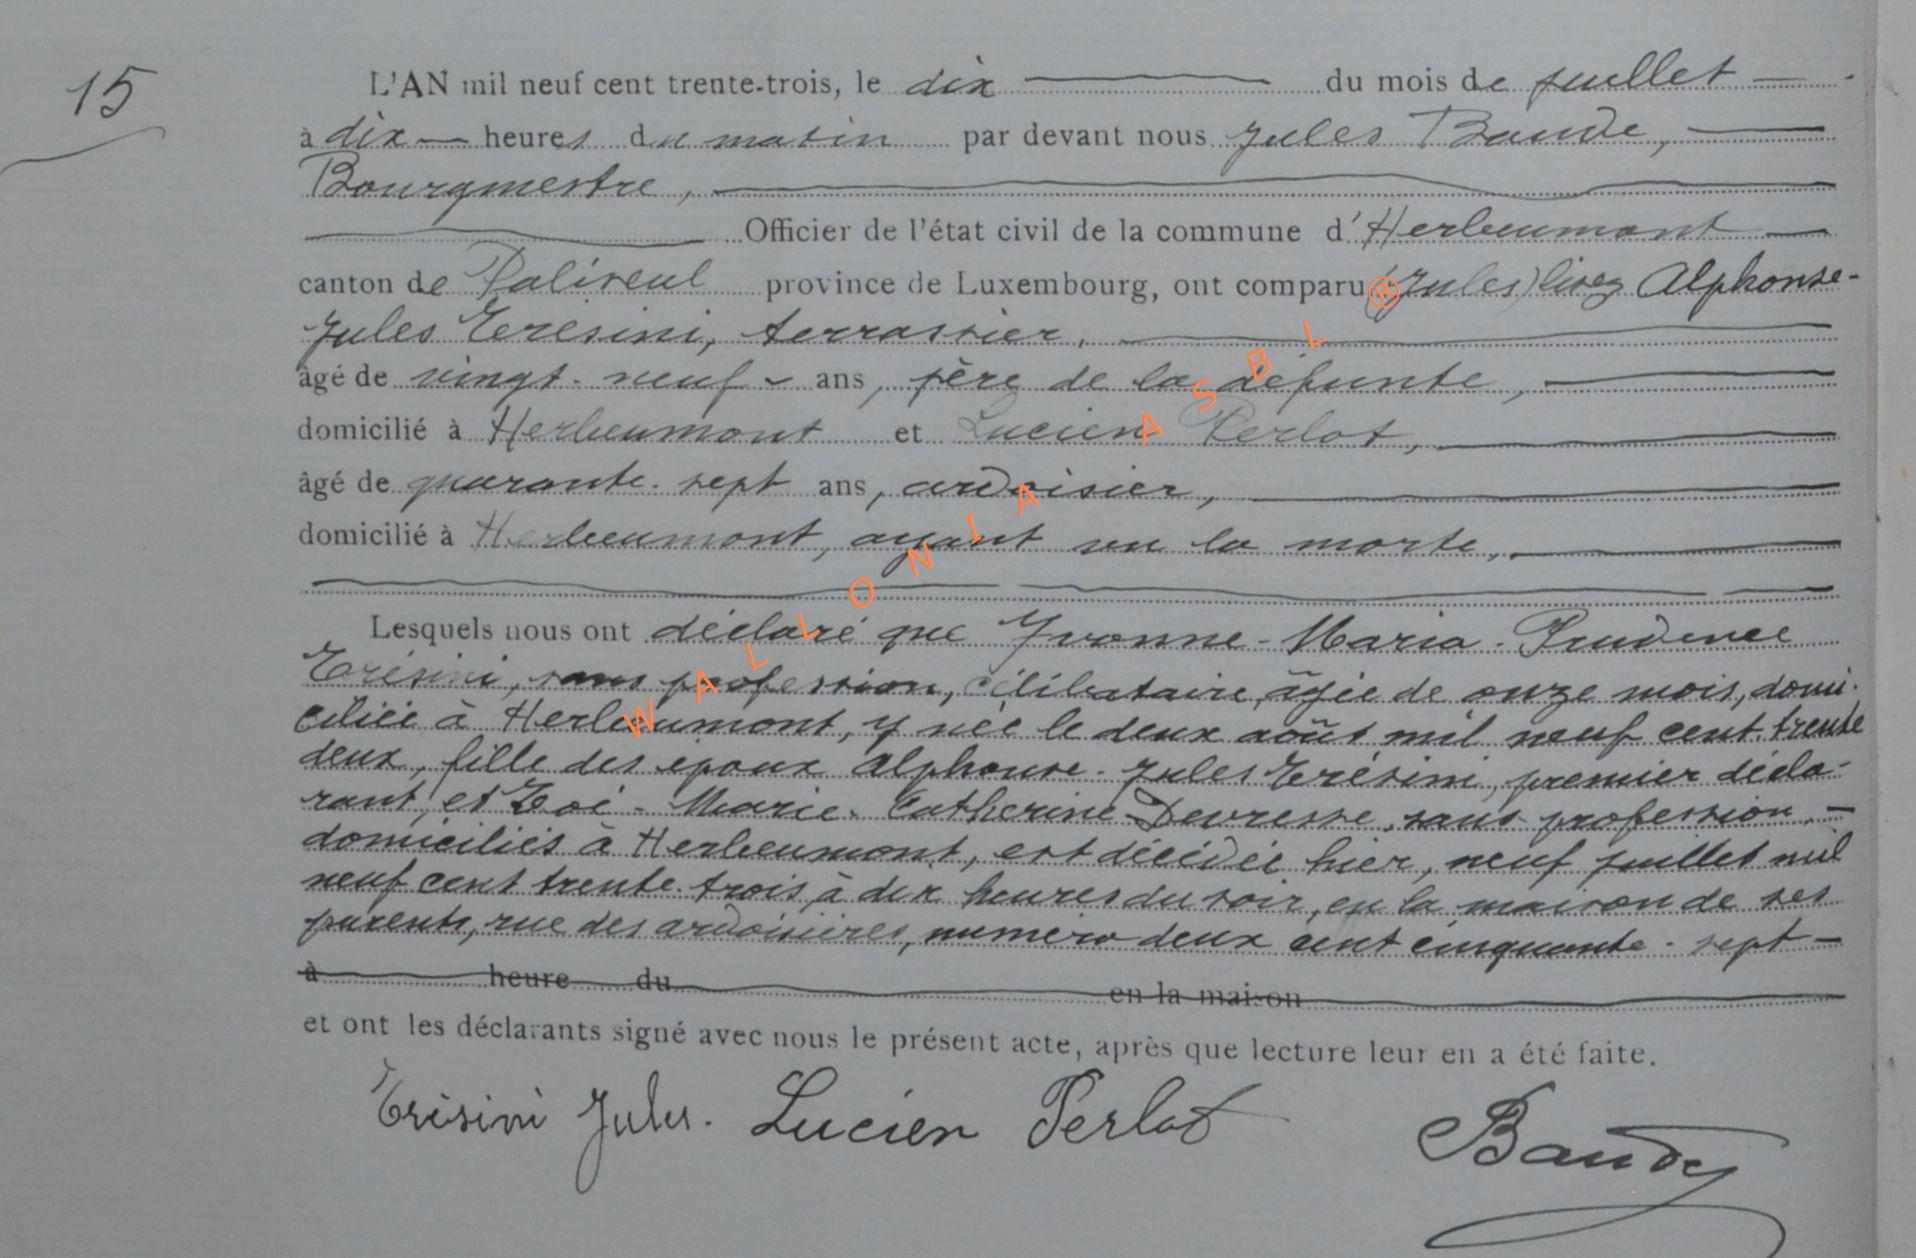 15
L'AN mil neuf cent trente-trois, le dix du mois de juillet
à dix heures du matin par devant nous Jules Baude,
Bourgmestre,
Officier de l'état civil de la commune d'Herbeumont
canton de Paliseul province de Luxembourg, ont comparu (Jules) lisez Alphonse-
Jules Trésini, terrassier,
âgé de vingt-neuf ans, père de la défunte,
domicilié à Herbeumont et Lucien Perlot,
âgé de quarante-sept ans, ardoisier,
domicilié à Herbeumont, ayant vu la morte,
Lesquels nous ont déclaré que Yvonne-Maria-Prudence
Trésini, sans profession, célibataire, âgée de onze mois, domi-
ciliée à Herbeumont, y née le deux août mil neuf cent trente
deux, fille des époux Alphonse-Jules Trésini, premier décla-
rant, et Zoé-Marie-Catherine Devresse, sans profession,
domiciliés à Herbeumont, est décédée hier, neuf juillet mil
neuf cent trente-trois à dix heures du soir, en la maison de ses
parents, rue des ardoisières, numéro deux cent cinquante-sept
à heure du en la maison
et ont les déclarants signé avec nous le présent acte, après que lecture leur en a été faite.
Trésini Jules. Lucien Perlot Baude
WALLONIA ASBL ®